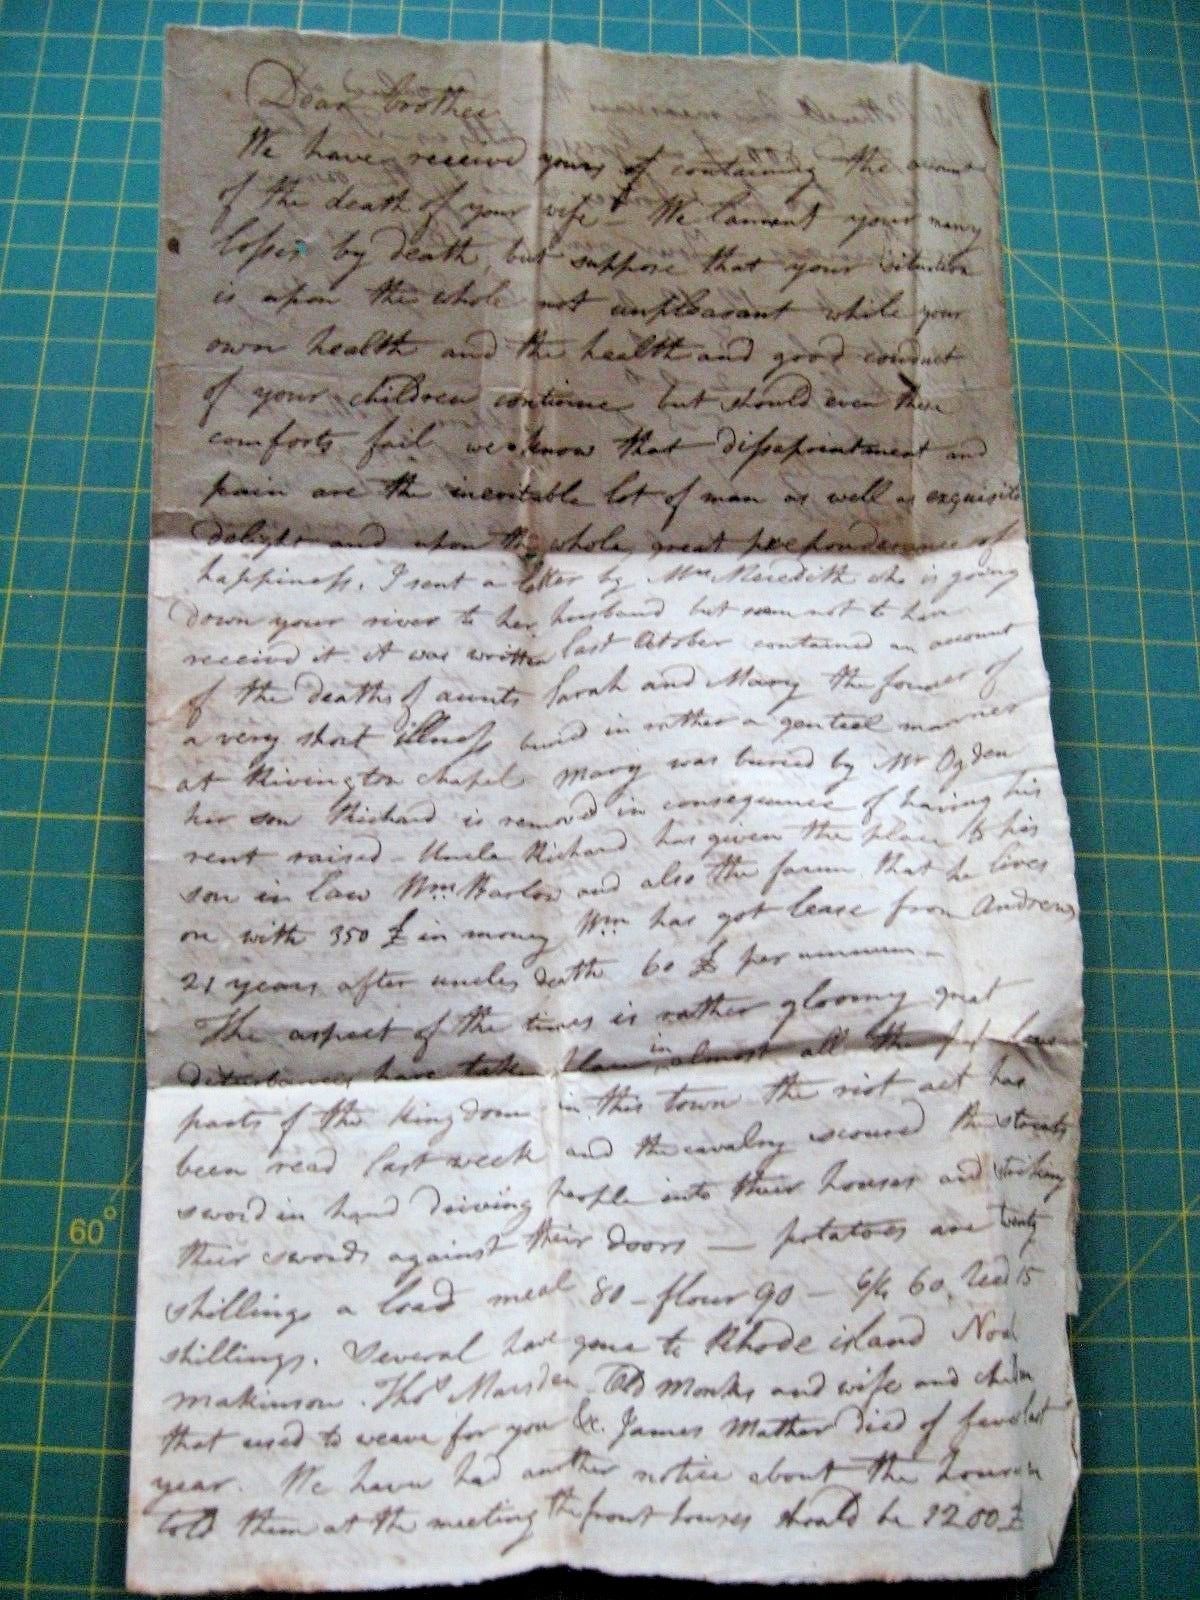 Dear brother
We have receive yours of containing the account
of the death of your wife We lament your many
losses by death, but suppose that your situation
is upon the whole not unpleasant while your
own health and the health and good conduct
of your children continue but should even these
comforts fail we know that dissapointment and
pain are the inevitable lot of man as well as exquisite
delight and upon the whole, great preponderance of
happiness. I sent a letter by Mrs Meredith who is going
down your river to her husband but seem not to have
received it. it was written last October contained an account
of the deaths of aunts Sarah and Mary the former of
a very short illness buried in rather a genteel manner
at Rivington chapel Mary was buried by Mr Ogden
her son Richard is removed in consequence of having his
rent raised - Uncle Richard has given the place to his
son in law Wm Barlow and also the farm that he lives
on with 350 £ in money Wm has got lease from Andrews
21 years after uncles death 60 £ per annum -
The aspect of the times is rather gloomy great
disturbances have taken place in almost all the
parts of the kingdom in this town the riot act has
been read last week and the cavalry scoured the streets
sword in hand driving people into their houses and striking
their swords against their doors — potatoes are twenty
shillings a load meal 80 - flour 90 - 6/4 60 15
shillings. Several have gone to Rhode island
makinson. Thos Marsden Old Monks and wife and children
that used to weave for you &c. James Mather died of fever last
year. We have had another notice about the houses
told them at the meeting the front houses should be 1200 £
60°